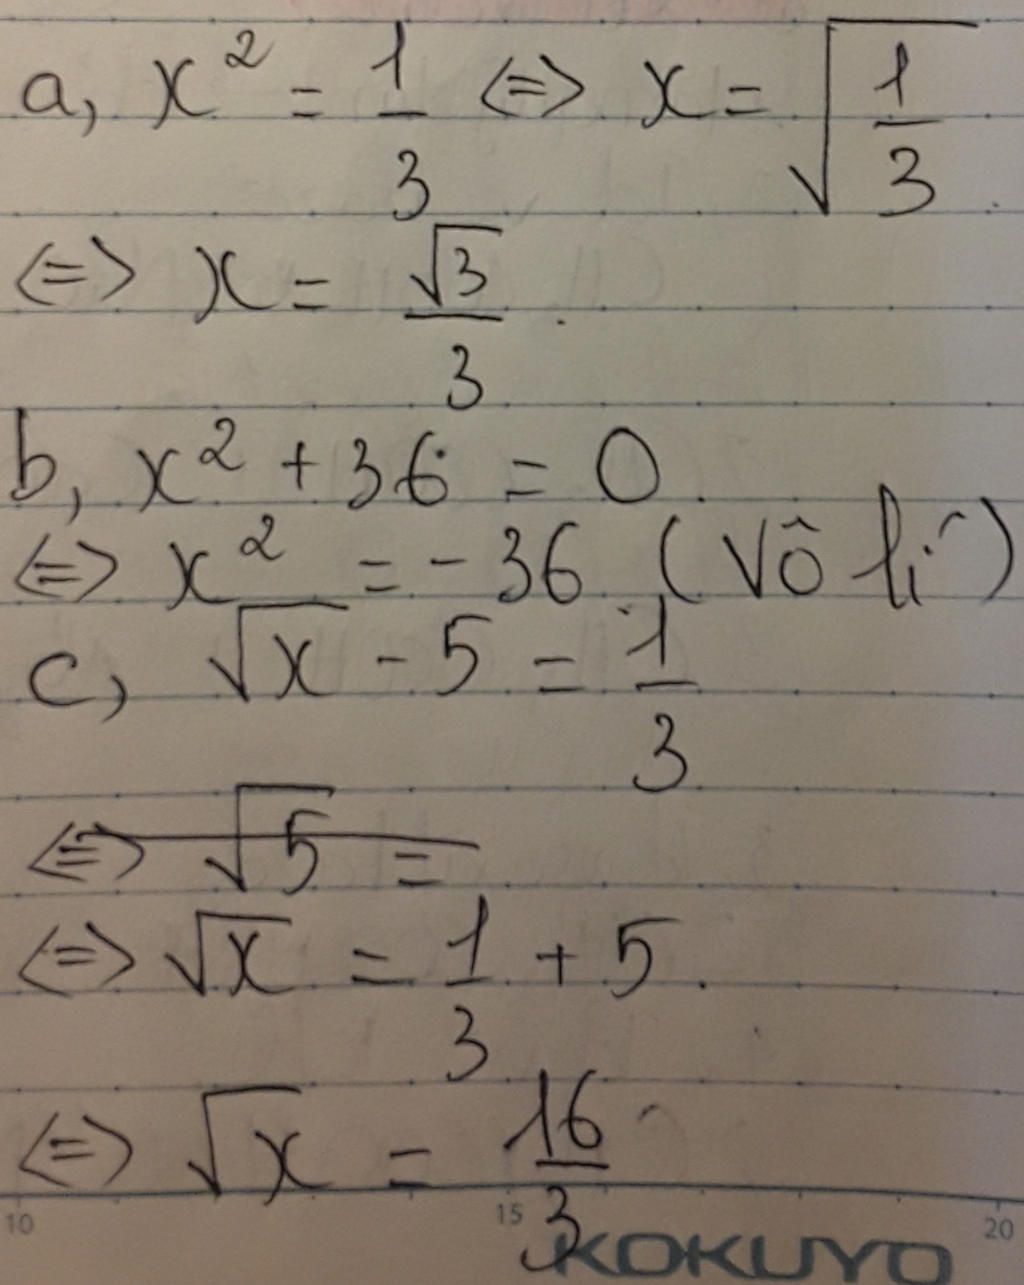 a, x² = 1/3 <=> x = √(1/3)
<=> x = √3/3.
b, x² + 36 = 0.
<=> x² = - 36 (Vô lí)
c, √x - 5 = 1/3
<=> √5 =
<=> √x = 1/3 + 5.
<=> √x = 16/3
10 15 20
KOKUYO